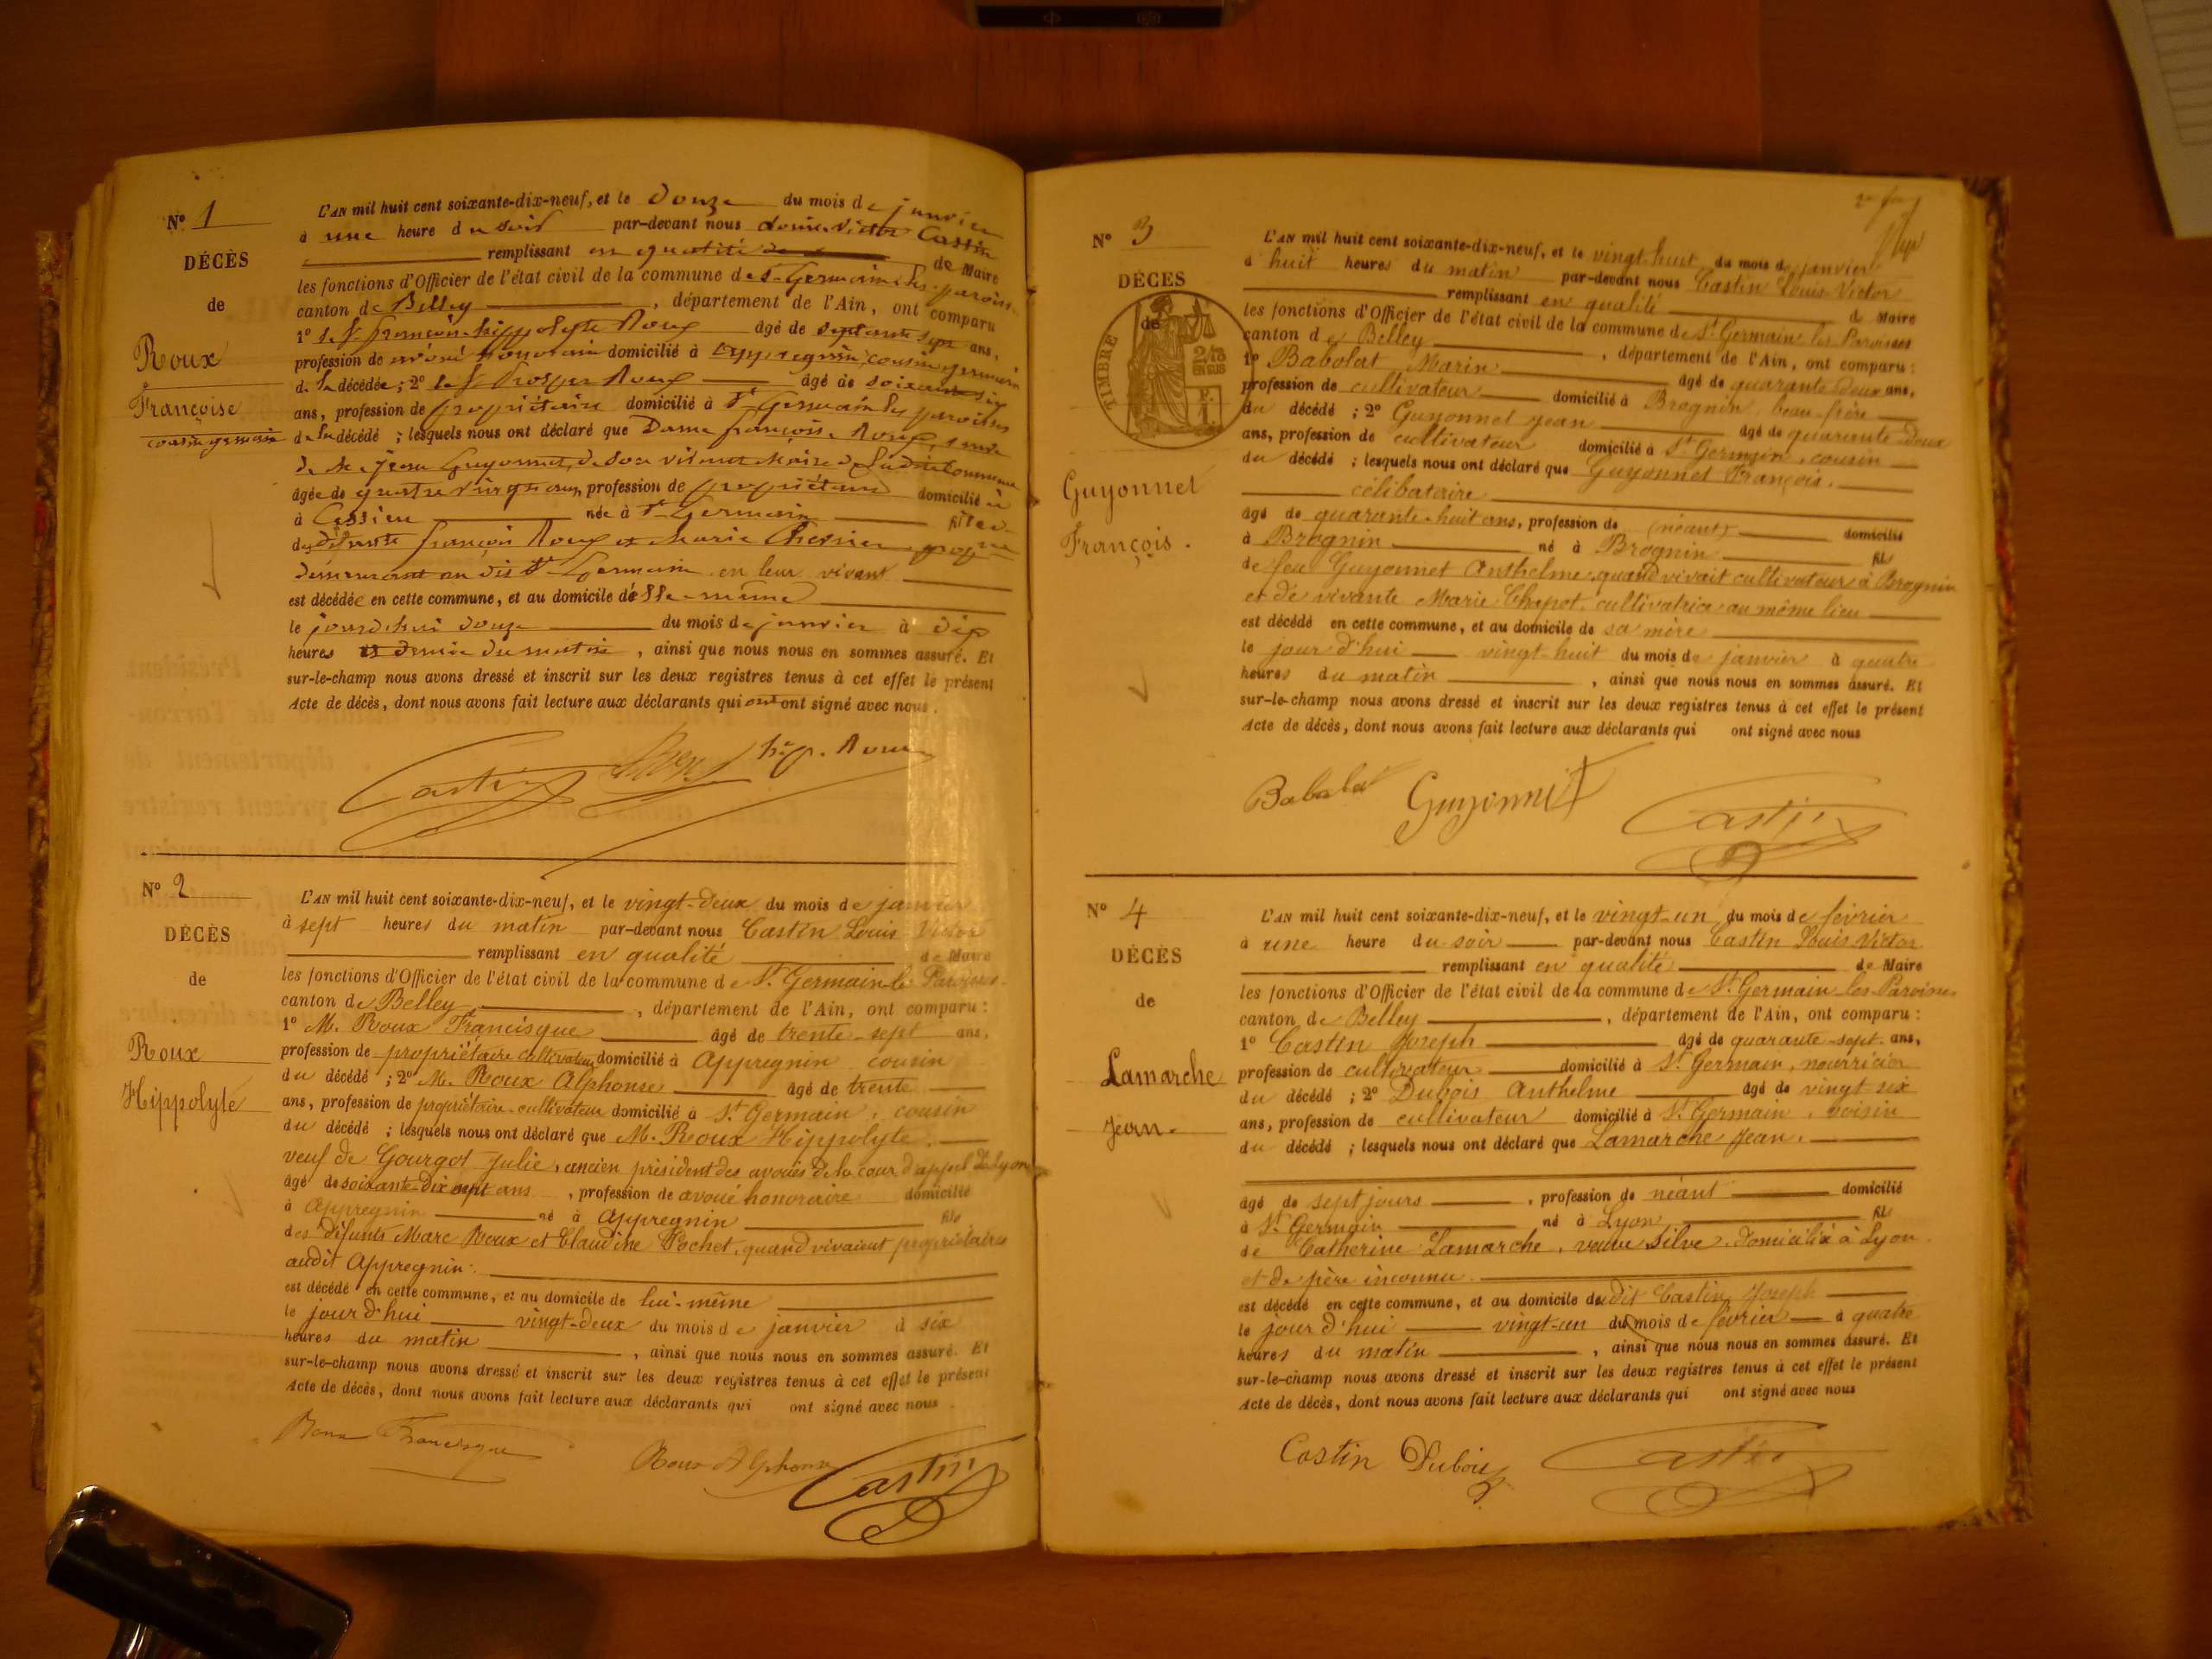 N° 1
DÉCÈS
de
Roux
Françoise
L'AN mil huit cent soixante-dix-neuf, et le douze du mois de janvier
à une heure du soir par-devant nous Louis Victor Castin
remplissant en qualité de Maire
les fonctions d'Officier de l'état civil de la commune de St Germain les paroisses
canton de Belley, département de l'Ain, ont comparu
1° François hippolyte Roux âgé de septante sept ans,
profession de avoué honoraire domicilié à appregnin, cousin germain
de la décédée ; 2° Prosper Roux âgé de soixante six
ans, profession de propriétaire domicilié à St Germain les paroisses
cousin germain de la décédé ; lesquels nous ont déclaré que Dame françoise Roux, veuve
de Me Jean Guyonnet, de son vivant Maire de Ladite Commune
âgée de quatre vingt ans, profession de propriétaire domicilié
à Cessieu née à St Germain fille
défunts françois Roux et Marie Chesnier
demeurant au dit St Germain en leur vivant
est décédée en cette commune, et au domicile d'elle-même
le jourd'hui douze du mois de janvier à dix
heures et demie du matin, ainsi que nous nous en sommes assuré. Et
sur-le-champ nous avons dressé et inscrit sur les deux registres tenus à cet effet le présent
Acte de décès, dont nous avons fait lecture aux déclarants qui ont signé avec nous.
Castin hip. Roux
N° 2
DÉCÈS
de
Roux
Hippolyte
L'AN mil huit cent soixante-dix-neuf, et le vingt-deux du mois de janvier
à sept heures du matin par-devant nous Castin Louis Victor
remplissant en qualité de Maire
les fonctions d'Officier de l'état civil de la commune de St. Germain les Paroisses
canton de Belley, département de l'Ain, ont comparu :
1° M. Roux Francisque âgé de trente-sept ans,
profession de propriétaire cultivateur domicilié à Appregnin cousin
du décédé ; 2° M. Roux Alphonse âgé de trente
ans, profession de propriétaire-cultivateur domicilié à St. Germain, cousin
du décédé ; lesquels nous ont déclaré que M. Roux Hippolyte.
veuf de Gourgot Julie, ancien président des avoués de la cour d'appel de Lyon
âgé de soixante-dix sept ans, profession de avoué honoraire domicilié
à Appregnin né à Appregnin fils
des défunts Marc Roux et Claudine Pochet, quand vivaient propriétaires
audit Appregnin.
est décédé en cette commune, et au domicile de lui-même
le jourd'hui vingt-deux du mois de janvier à six
heures du matin, ainsi que nous nous en sommes assuré. Et
sur-le-champ nous avons dressé et inscrit sur les deux registres tenus à cet effet le présent
Acte de décès, dont nous avons fait lecture aux déclarants qui ont signé avec nous.
Roux Francisque Roux Alphonse Castin
N° 3
DÉCÈS
de
TIMBRE
2/10
EN SUS
Guyonnet
François.
L'AN mil huit cent soixante-dix-neuf, et le vingt-huit du mois de janvier
à huit heures du matin par-devant nous Castin Louis Victor
remplissant en qualité de Maire
les fonctions d'Officier de l'état civil de la commune de St Germain les Paroisses
canton de Belley, département de l'Ain, ont comparu :
1° Babolat Marin âgé de quarante-deux ans,
profession de cultivateur domicilié à Brognin, beau-frère
du décédé ; 2° Guyonnet Jean âgé de quarante-deux
ans, profession de cultivateur domicilié à St Germain, cousin
du décédé ; lesquels nous ont déclaré que Guyonnet François.
célibataire
âgé de quarante-huit ans, profession de (néant) domicilié
à Brognin né à Brognin fils
de feu Guyonnet Anthelme, quand vivait cultivateur à Brognin
et de vivante Marie Chapot, cultivatrice au même lieu
est décédé en cette commune, et au domicile de sa mère
le jour d'hui vingt-huit du mois de janvier à quatre
heures du matin, ainsi que nous nous en sommes assuré. Et
sur-le-champ nous avons dressé et inscrit sur les deux registres tenus à cet effet le présent
Acte de décès, dont nous avons fait lecture aux déclarants qui ont signé avec nous
Babolat Guyonnet Castin
N° 4
DÉCÈS
de
Lamarche
Jean.
L'AN mil huit cent soixante-dix-neuf, et le vingt-un du mois de février
à une heure du soir par-devant nous Castin Louis Victor
remplissant en qualité de Maire
les fonctions d'Officier de l'état civil de la commune de St. Germain-les-Paroisses
canton de Belley, département de l'Ain, ont comparu :
1° Castin Joseph âgé de quarante-sept ans,
profession de cultivateur domicilié à St. Germain, nourricier
du décédé ; 2° Dubois Anthelme âgé de vingt-six
ans, profession de cultivateur domicilié à St. Germain, voisin
du décédé ; lesquels nous ont déclaré que Lamarche Jean.
âgé de sept jours, profession de néant domicilié
à St. Germain né à Lyon fils
de Catherine Lamarche, veuve Silve, domiciliée à Lyon
et de père inconnu.
est décédé en cette commune, et au domicile dudit Castin Joseph
le jour d'hui vingt-un du mois de février à quatre
heures du matin, ainsi que nous nous en sommes assuré. Et
sur-le-champ nous avons dressé et inscrit sur les deux registres tenus à cet effet le présent
Acte de décès, dont nous avons fait lecture aux déclarants qui ont signé avec nous
Castin Dubois Castin